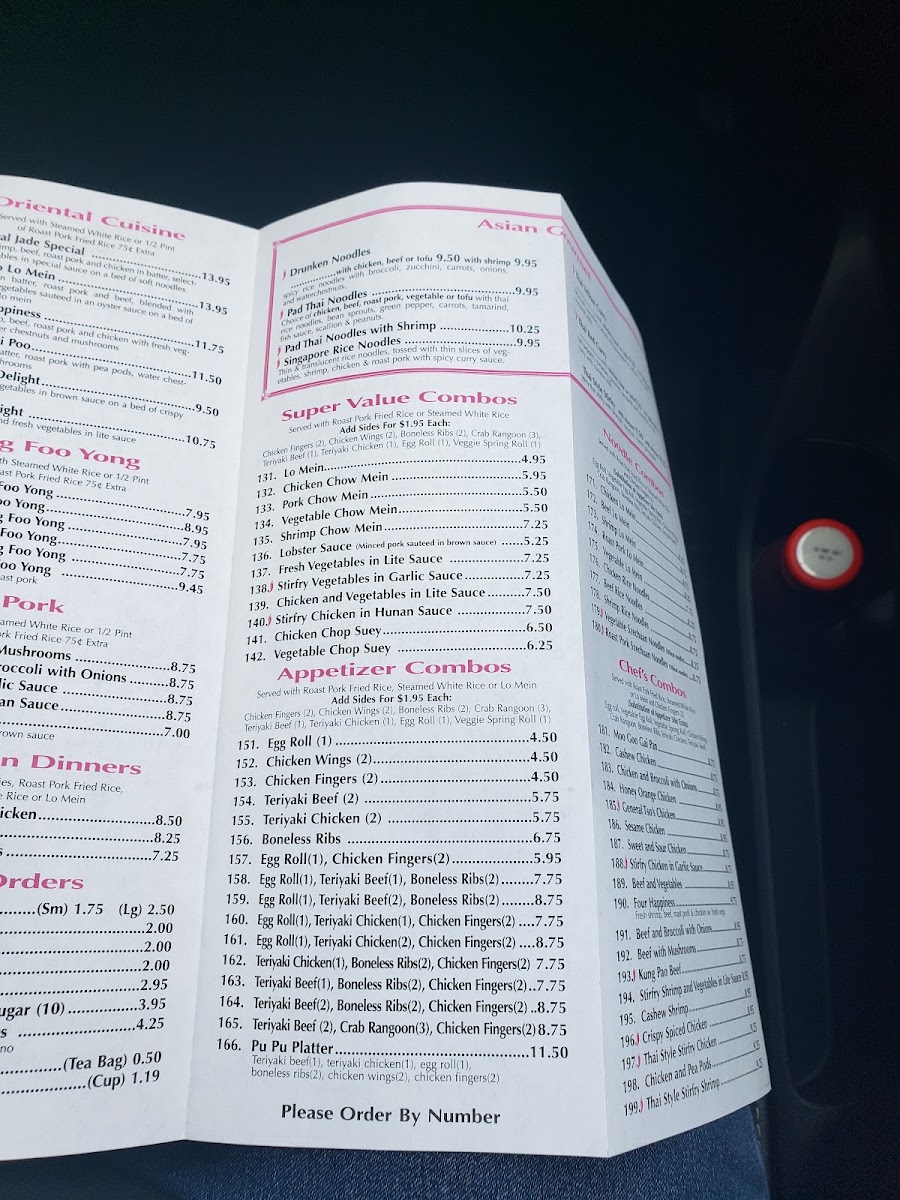 Oriental Cuisine
Served with Steamed White Rice or 1/2 Pint
of Roast Pork Fried Rice 75¢ Extra
al Jade Special ..........13.95
imp, beef, roast pork and chicken in batter, select-
bles in special sauce on a bed of soft noodles
Lo Mein..........13.95
n batter, roast pork and beef, blended with
vegetables sauteed in an oyster sauce on a bed of
lo mein
ppiness ..........11.75
p, beef, roast pork and chicken with fresh veg-
er chestnuts and mushrooms
i Poo..........11.50
atter, roast pork with pea pods, water chest-
hrooms
Delight..........9.50
getables in brown sauce on a bed of crispy
ight ..........10.75
nd fresh vegetables in lite sauce
g Foo Yong
th Steamed White Rice or 1/2 Pint
ast Pork Fried Rice 75¢ Extra
Foo Yong ..........7.95
oo Yong..........8.95
g Foo Yong ..........7.95
Foo Yong..........7.75
g Foo Yong ..........7.75
Foo Yong ..........9.45
ast pork
Pork
amed White Rice or 1/2 Pint
rk Fried Rice 75¢ Extra
Mushrooms ..........8.75
roccoli with Onions ..........8.75
lic Sauce ..........8.75
an Sauce..........8.75
..........7.00
rown sauce
n Dinners
ies, Roast Pork Fried Rice,
e Rice or Lo Mein
icken..........8.50
..........8.25
s ..........7.25
Orders
..........(Sm) 1.75 (Lg) 2.50
..........2.00
..........2.00
..........2.00
..........2.95
ugar (10)..........3.95
s ..........4.25
no
..........(Tea Bag) 0.50
..........(Cup) 1.19
Asian G
Drunken Noodles
..........with chicken, beef or tofu 9.50 with shrimp 9.95
spicy rice noodles with broccoli, zucchini, carrots, onions,
and waterchestnuts.
Pad Thai Noodles ..........9.95
Choice of chicken, beef, roast pork, vegetable or tofu with thai
rice noodles, bean sprouts, green pepper, carrots, tamarind,
fish sauce, scallion & peanuts.
Pad Thai Noodles with Shrimp ..........10.25
Singapore Rice Noodles ..........9.95
Thin & translucent rice noodles, tossed with thin slices of veg-
etables, shrimp, chicken & roast pork with spicy curry sauce.
Super Value Combos
Served with Roast Pork Fried Rice or Steamed White Rice
Add Sides For $1.95 Each:
Chicken Fingers (2), Chicken Wings (2), Boneless Ribs (2), Crab Rangoon (3),
Teriyaki Beef (1), Teriyaki Chicken (1), Egg Roll (1), Veggie Spring Roll (1)
131. Lo Mein..........4.95
132. Chicken Chow Mein ..........5.95
133. Pork Chow Mein ..........5.50
134. Vegetable Chow Mein..........5.50
135. Shrimp Chow Mein ..........7.25
136. Lobster Sauce (Minced pork sauteed in brown sauce) ......5.25
137. Fresh Vegetables in Lite Sauce ..........7.25
138. Stirfry Vegetables in Garlic Sauce ..........7.25
139. Chicken and Vegetables in Lite Sauce..........7.50
140. Stirfry Chicken in Hunan Sauce ..........7.50
141. Chicken Chop Suey..........6.50
142. Vegetable Chop Suey ..........6.25
Appetizer Combos
Served with Roast Pork Fried Rice, Steamed White Rice or Lo Mein
Add Sides For $1.95 Each:
Chicken Fingers (2), Chicken Wings (2), Boneless Ribs (2), Crab Rangoon (3),
Teriyaki Beef (1), Teriyaki Chicken (1), Egg Roll (1), Veggie Spring Roll (1)
151. Egg Roll (1) ..........4.50
152. Chicken Wings (2)..........4.50
153. Chicken Fingers (2)..........4.50
154. Teriyaki Beef (2) ..........5.75
155. Teriyaki Chicken (2) ..........5.75
156. Boneless Ribs ..........6.75
157. Egg Roll(1), Chicken Fingers(2)..........5.95
158. Egg Roll(1), Teriyaki Beef(1), Boneless Ribs(2)........7.75
159. Egg Roll(1), Teriyaki Beef(2), Boneless Ribs(2)........8.75
160. Egg Roll(1), Teriyaki Chicken(1), Chicken Fingers(2)....7.75
161. Egg Roll(1), Teriyaki Chicken(2), Chicken Fingers(2)....8.75
162. Teriyaki Chicken(1), Boneless Ribs(2), Chicken Fingers(2) 7.75
163. Teriyaki Beef(1), Boneless Ribs(2), Chicken Fingers(2)..7.75
164. Teriyaki Beef(2), Boneless Ribs(2), Chicken Fingers(2)..8.75
165. Teriyaki Beef (2), Crab Rangoon(3), Chicken Fingers(2)8.75
166. Pu Pu Platter..........11.50
Teriyaki beef(1), teriyaki chicken(1), egg roll(1),
boneless ribs(2), chicken wings(2), chicken fingers(2)
Please Order By Number
Noodle Combos
171. Chicken Lo Mein
172. Beef Lo Mein
173. Shrimp Lo Mein
174. Roast Pork Lo Mein
175. Vegetable Lo Mein
176. Chicken Rice Noodles
177. Beef Rice Noodles
178. Shrimp Rice Noodles
179. Vegetable Szechuan Noodles
180. Roast Pork Szechuan Noodles
Chef's Combos
Served with Roast Pork Fried Rice, Steamed White Rice
or Lo Mein and Chicken Fingers (2)
181. Moo Goo Gai Pan
182. Cashew Chicken
183. Chicken and Broccoli with Onions
184. Honey Orange Chicken
185. General Tso's Chicken
186. Sesame Chicken
187. Sweet and Sour Chicken
188. Stirfry Chicken in Garlic Sauce
189. Beef and Vegetables
190. Four Happiness
Fresh shrimp, beef, roast pork & chicken w/ fresh vegs.
191. Beef and Broccoli with Onions
192. Beef with Mushrooms
193. Kung Pao Beef
194. Stirfry Shrimp and Vegetables in Lite Sauce
195. Cashew Shrimp
196. Crispy Spiced Chicken
197. Thai Style Stirfry Chicken
198. Chicken and Pea Pods
199. Thai Style Stirfry Shrimp